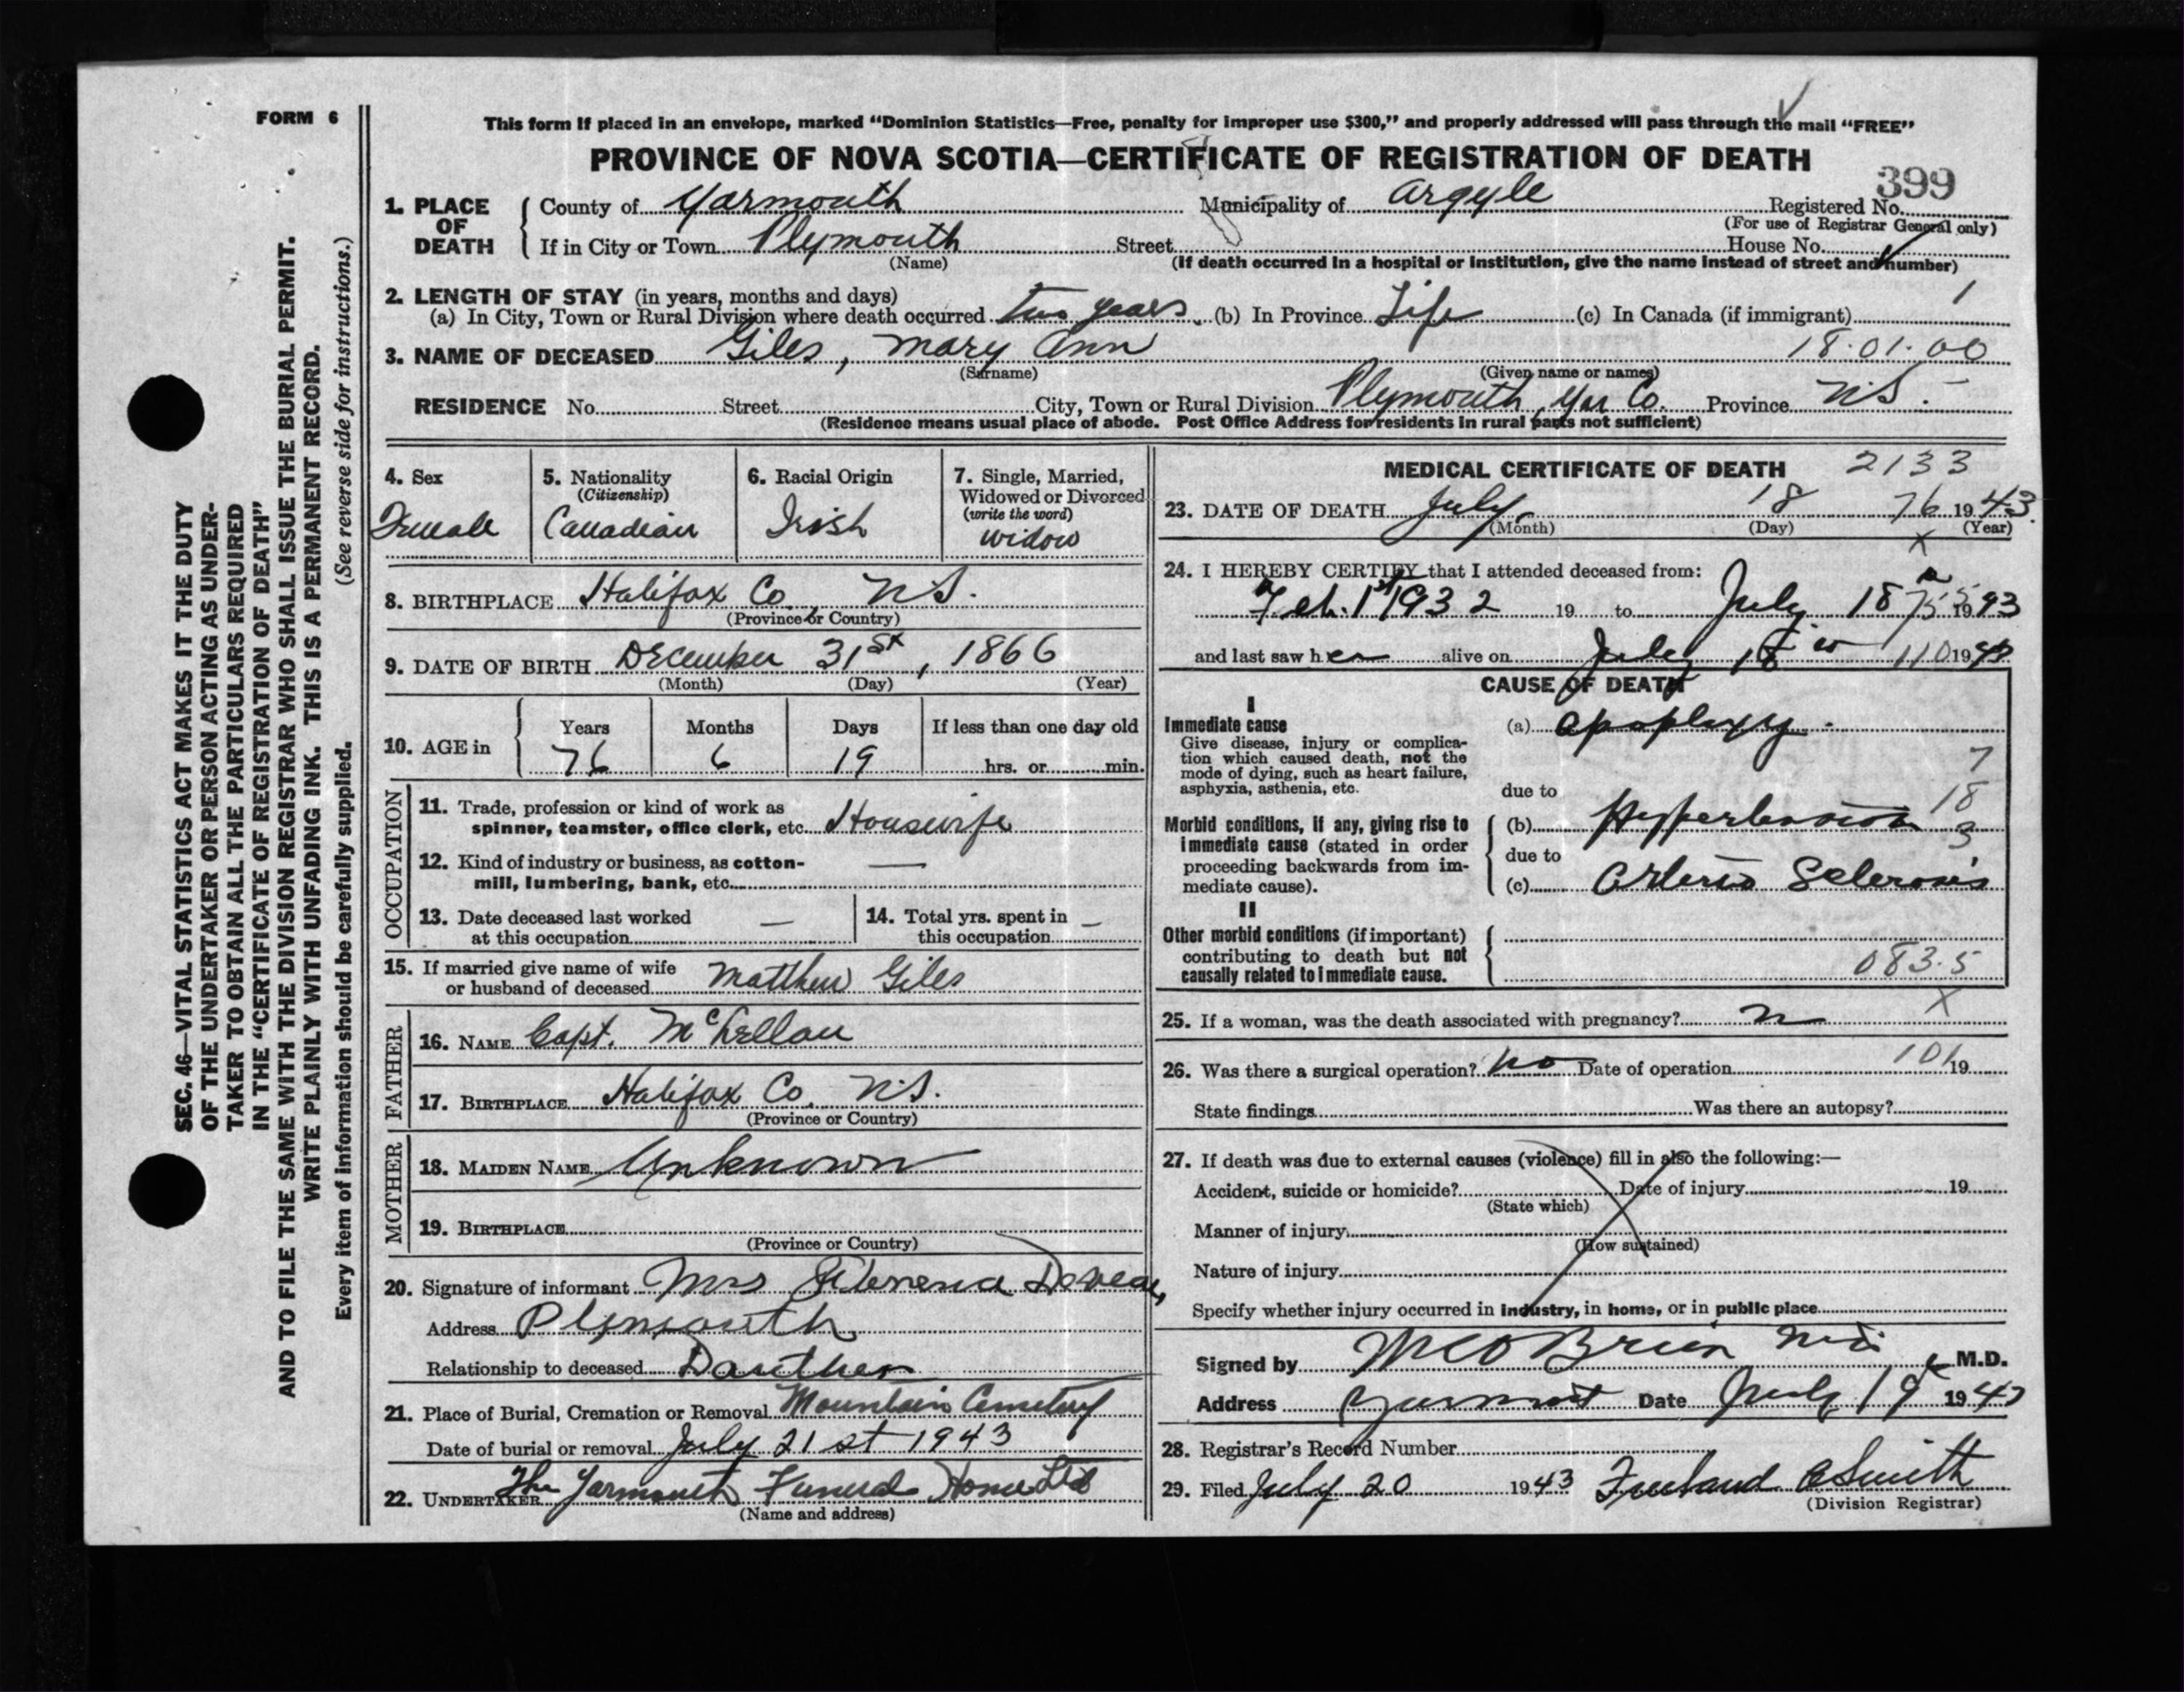 FORM 6
SEC. 46—VITAL STATISTICS ACT MAKES IT THE DUTY
OF THE UNDERTAKER OR PERSON ACTING AS UNDER-
TAKER TO OBTAIN ALL THE PARTICULARS REQUIRED
IN THE "CERTIFICATE OF REGISTRATION OF DEATH"
AND TO FILE THE SAME WITH THE DIVISION REGISTRAR WHO SHALL ISSUE THE BURIAL PERMIT.
WRITE PLAINLY WITH UNFADING INK. THIS IS A PERMANENT RECORD.
Every item of information should be carefully supplied. (See reverse side for instructions.)
This form if placed in an envelope, marked "Dominion Statistics—Free, penalty for improper use $300," and properly addressed will pass through the mail "FREE"
PROVINCE OF NOVA SCOTIA—CERTIFICATE OF REGISTRATION OF DEATH
399
1. PLACE OF DEATH County of Yarmouth Municipality of Argyle Registered No.
(For use of Registrar General only)
If in City or Town Plymouth Street House No.
(Name) (If death occurred in a hospital or institution, give the name instead of street and number)
2. LENGTH OF STAY (in years, months and days) 1
(a) In City, Town or Rural Division where death occurred two years (b) In Province Life (c) In Canada (if immigrant)
3. NAME OF DECEASED Giles, Mary Ann 18.01.00
(Surname) (Given name or names)
RESIDENCE No. Street City, Town or Rural Division Plymouth, Yar Co. Province N.S.
(Residence means usual place of abode. Post Office Address for residents in rural parts not sufficient)
4. Sex Female
5. Nationality (Citizenship) Canadian
6. Racial Origin Irish
7. Single, Married, Widowed or Divorced (write the word) widow
8. BIRTHPLACE Halifax Co., N.S.
(Province or Country)
9. DATE OF BIRTH December 31st, 1866
(Month) (Day) (Year)
10. AGE in Years Months Days If less than one day old
76 6 19 hrs. or min.
OCCUPATION
11. Trade, profession or kind of work as
spinner, teamster, office clerk, etc. Housewife
12. Kind of industry or business, as cotton- —
mill, lumbering, bank, etc.
13. Date deceased last worked at this occupation —
14. Total yrs. spent in this occupation —
15. If married give name of wife
or husband of deceased Matthew Giles
FATHER
16. NAME Capt. McLellan
17. BIRTHPLACE Halifax Co. N.S.
(Province or Country)
MOTHER
18. MAIDEN NAME Unknown
19. BIRTHPLACE
(Province or Country)
20. Signature of informant Mrs Deveau
Address Plymouth
Relationship to deceased Dauther
21. Place of Burial, Cremation or Removal Mountain Cemetery
Date of burial or removal July 21st 1943
22. UNDERTAKER The Yarmouth Funeral Home Ltd
(Name and address)
MEDICAL CERTIFICATE OF DEATH 2133
23. DATE OF DEATH July 18 76 1943
(Month) (Day) (Year)
24. I HEREBY CERTIFY that I attended deceased from:
Feb. 1st 1932 19 to July 18 1943
and last saw her alive on July 18 110 1943
CAUSE OF DEATH
I
Immediate cause (a) Apoplexy
Give disease, injury or complica-
tion which caused death, not the
mode of dying, such as heart failure,
asphyxia, asthenia, etc. due to
7
18
3
Morbid conditions, if any, giving rise to
immediate cause (stated in order
proceeding backwards from im-
mediate cause).
(b) Hypertension
due to
(c) Arterio Sclerosis
II
Other morbid conditions (if important)
contributing to death but not
causally related to immediate cause. 083.5
25. If a woman, was the death associated with pregnancy? n X
26. Was there a surgical operation? no Date of operation 101 19
State findings Was there an autopsy?
27. If death was due to external causes (violence) fill in also the following:—
Accident, suicide or homicide? Date of injury 19
(State which)
Manner of injury
(How sustained)
Nature of injury
Specify whether injury occurred in industry, in home, or in public place
Signed by W C O'Brien M.D. M.D.
Address Yarmouth Date July 19 1943
28. Registrar's Record Number
29. Filed July 20 1943 Freeland C Smith
(Division Registrar)